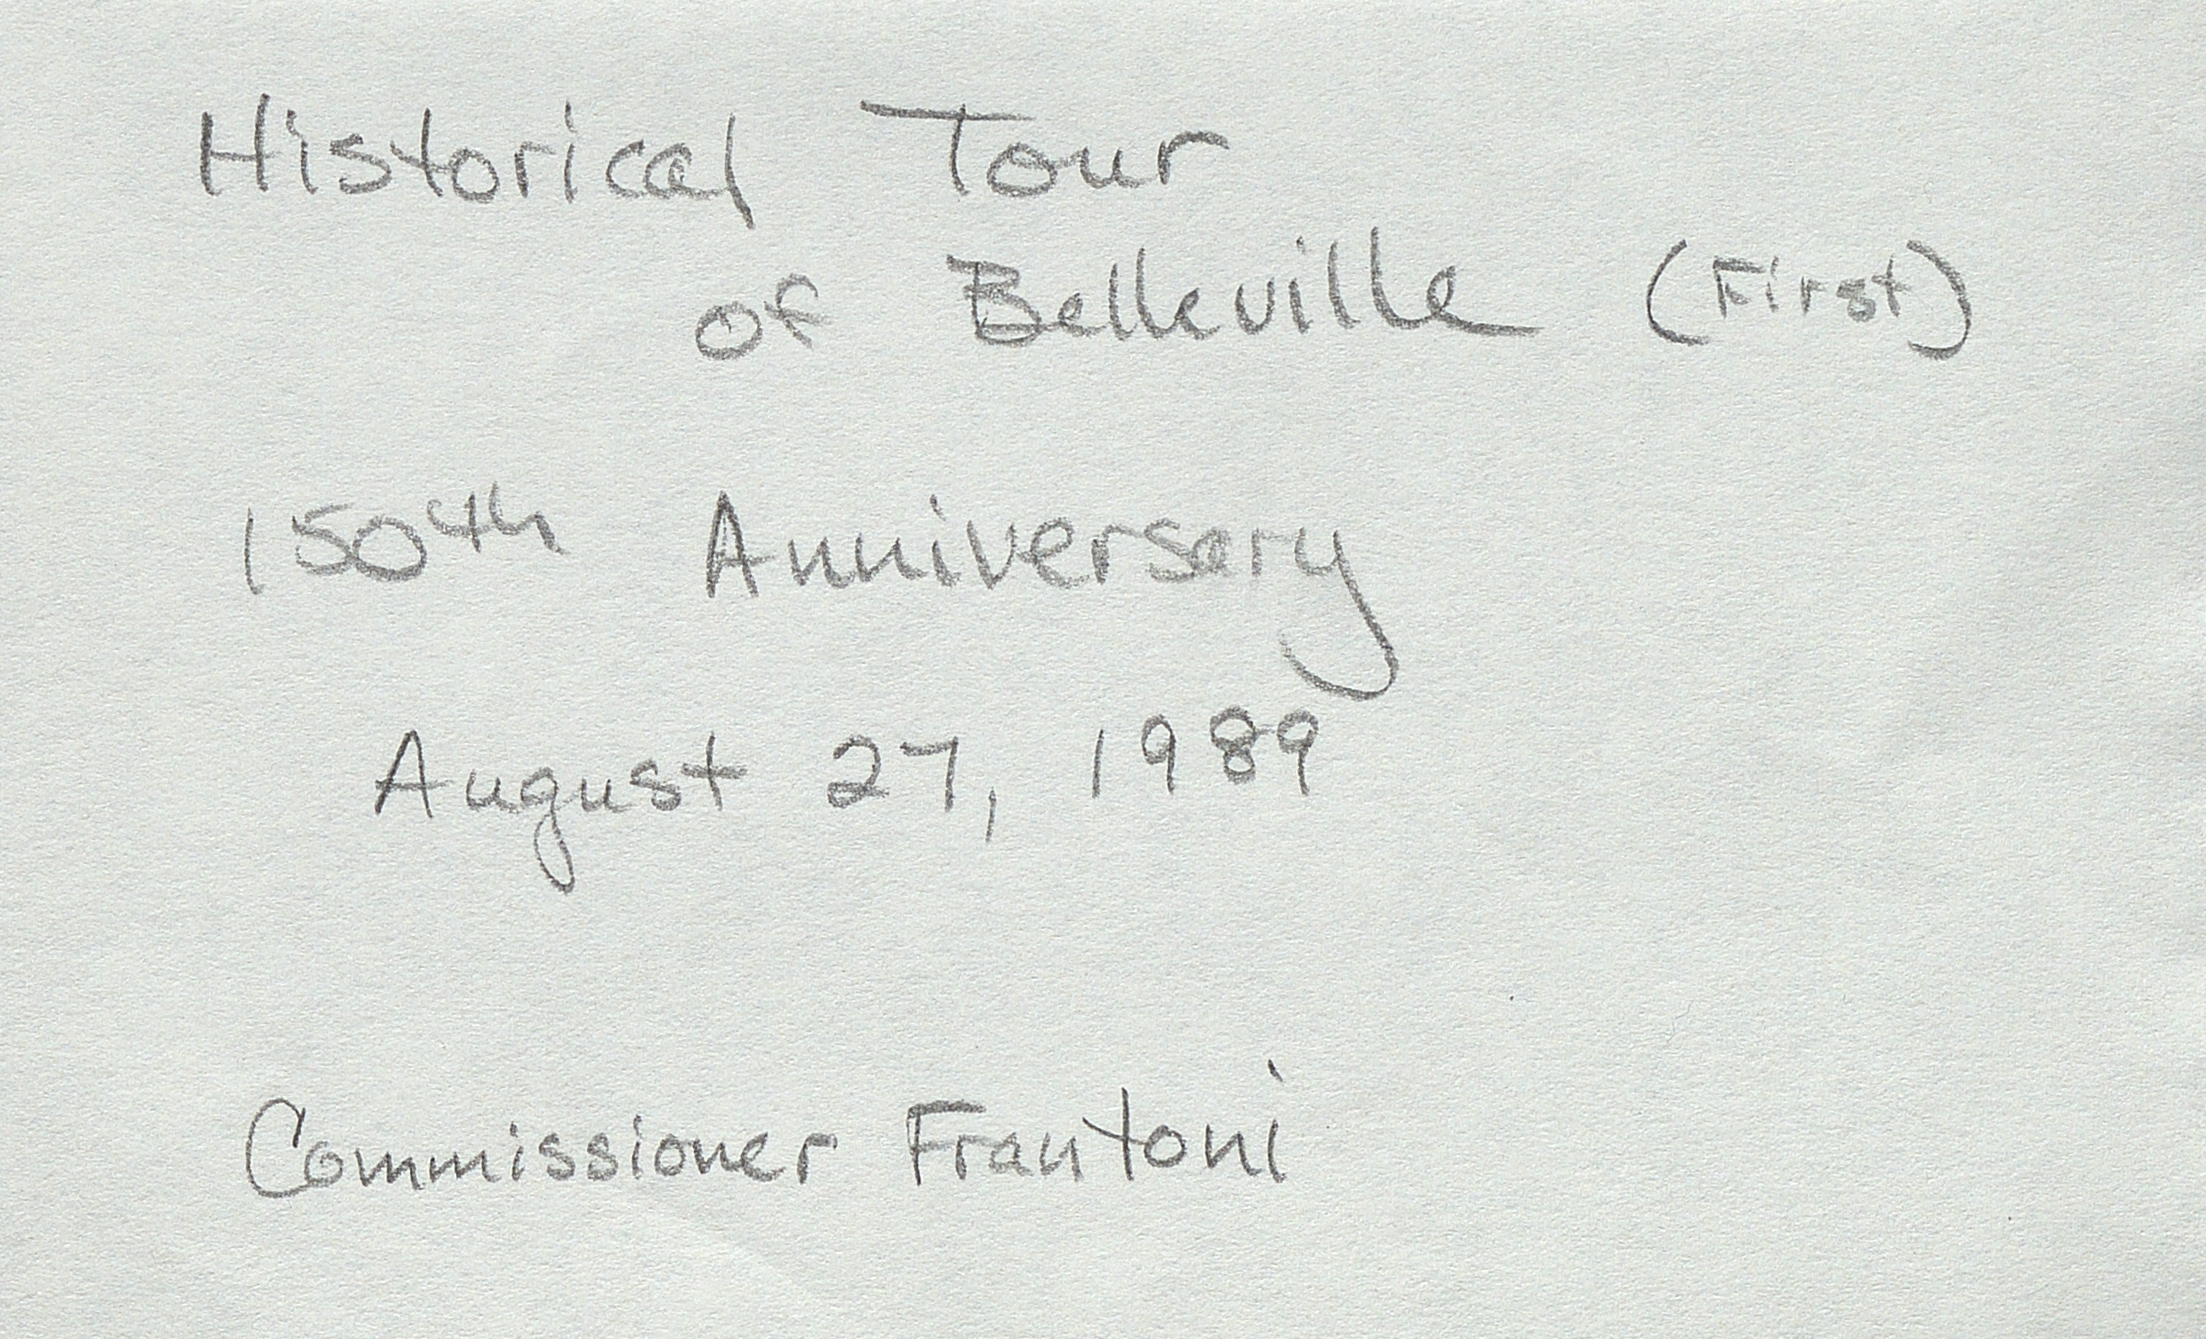 Historical Tour
of Belleville (First)
150th Anniversary
August 27, 1989
Commissioner Frantoni